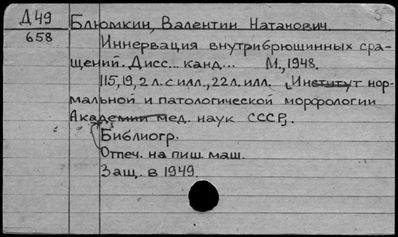 Д49 Блюмкин, Валентин Натанович.
658
Иннервация внутрибрюшинных сра-
щений. Дисс... канд... М., 1948.
115, 19, 2 л. с илл., 22 л. илл. (Институт нор-
мальной и патологической морфологии
Академии мед. наук СССР).
Библиогр.
Отпеч. на пиш. маш.
Защ. в 1949.